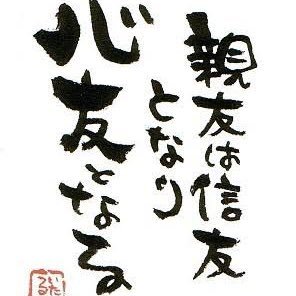 親友は信友
となり
心友となる